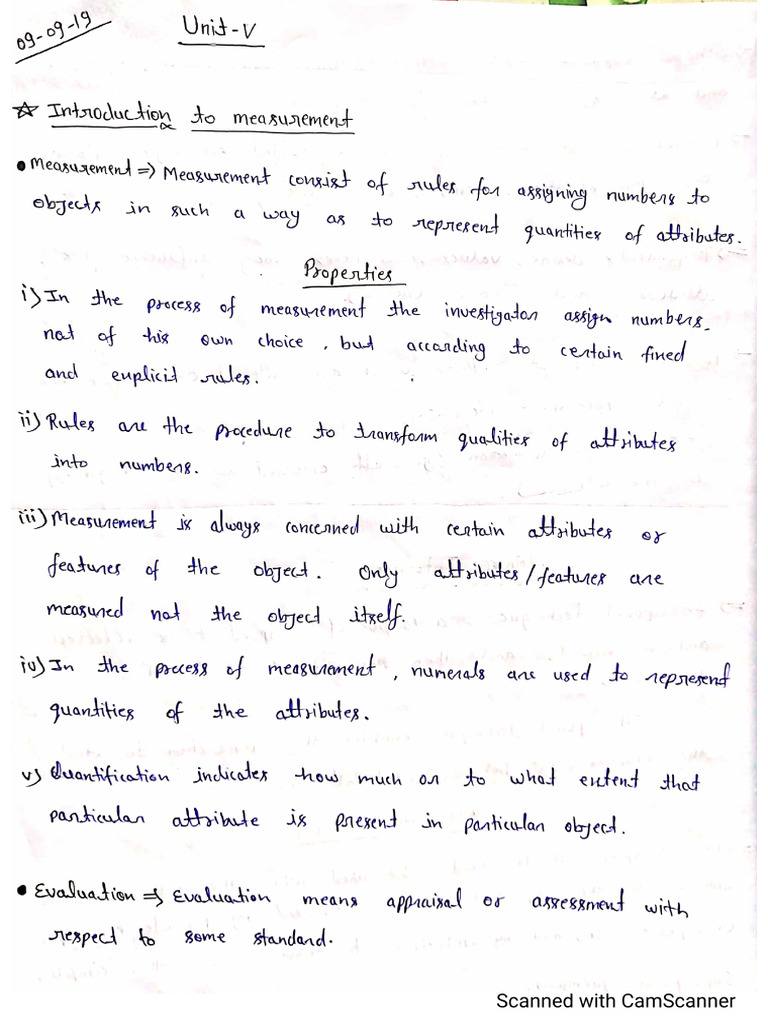 09-09-19
Unit-V
☆ Introduction to measurement
• Measurement => Measurement consist of rules for assigning numbers to
objects in such a way as to represent quantities of attributes.
Properties
i) In the process of measurement the investigator assign numbers,
not of his own choice, but according to certain fixed
and explicit rules.
ii) Rules are the procedure to transform qualities of attributes
into numbers.
iii) Measurement is always concerned with certain attributes or
features of the object. Only attributes/features are
measured not the object itself.
iv) In the process of measurement, numerals are used to represent
quantities of the attributes.
v) Quantification indicates how much or to what extent that
particular attribute is present in particular object.
• Evaluation => Evaluation means appraisal or assessment with
respect to some standard.
Scanned with CamScanner